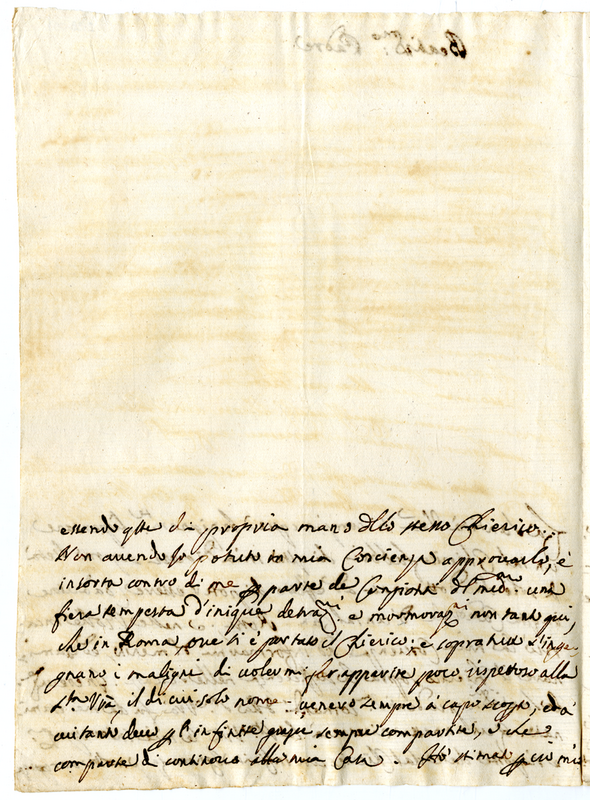 essendo qste di propria mano dllo stesso Chierico.
Non avendo Io potuto in mia Conscienza approvarle, è
insorta contro di me p parte de Campioni dl medmo una
fiera tempesta d'inique detrazni e mormorazni non tanto qui,
che in Roma, ove si è portato il Chierico: e sopratutto s'inge
gnano i maligni di volermi far apparire poco rispettoso alla
Stà Vrã, il di cui solo nome venero sempre à capo
tante infinite grazie sempre compartite, e che
comparte di continovo alla mia Casa. Hò stimato p ciò mio